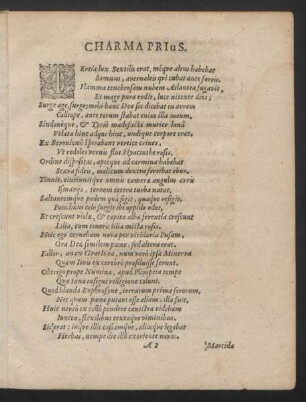 CHARMA PRIuS.
Tertia lux Sextilis erat, meque altus habebat
Somnus, avernaleis qui cubat ante foreis.
Flamma tenebrosam nubem Atlantea fugavit,
Et mage pura redit, luce nitente dies;
Surge age, surge; mihi hanc Dea sic dicebat in aurem
Calliope, ante torum stabat enim illa meum,
Sindonéque, & Tyriâ madefactâ murice lanâ
Velata hinc atque hinc, undique corpore erat,
Ex Beroniceo sperabant vertice crines,
Ut rediles vernis flos Hyacinthe rosis.
Ordine dispositas, aptéque ad carmina habebat
Sexta fides, molicum dextera feribat ebur.
Tinnit, eiusmodique omnis camera angulus aëris
Ismariis, ternam cetera turba natat.
Saltantemque pedem quà figit, quaque refigit,
Pancheaei celo surgit ibi appila odos,
Et crescunt violæ, & capita alba ferentia crescunt
Lilia, cum teneris lilia mista rosis.
Huic ego cernebam nova per viridaria Pusam,
Ora Dea similem pænè, sed altera erat.
Fallor, an ex Gratiis era, num verò ipsa Minerva
Quam Iovis ex cerebro prosiluisse ferunt.
Obstupo prope Numina, apud Pimpleïa tempe
Qua tuna insignis religione colunt.
Quod blanda Euphrosyne, terrarum prima sororum,
Nec quam pæne putant esse aliam, illa fuit,
Huic nevio ex collo pendere canistra videbam
Iuncea, flexilibus textaque viminibus.
Sic erat: inque illis casiamque, aliasque legebat
Herbas, nempe die illo exoriente novas.
A 2 Marcida